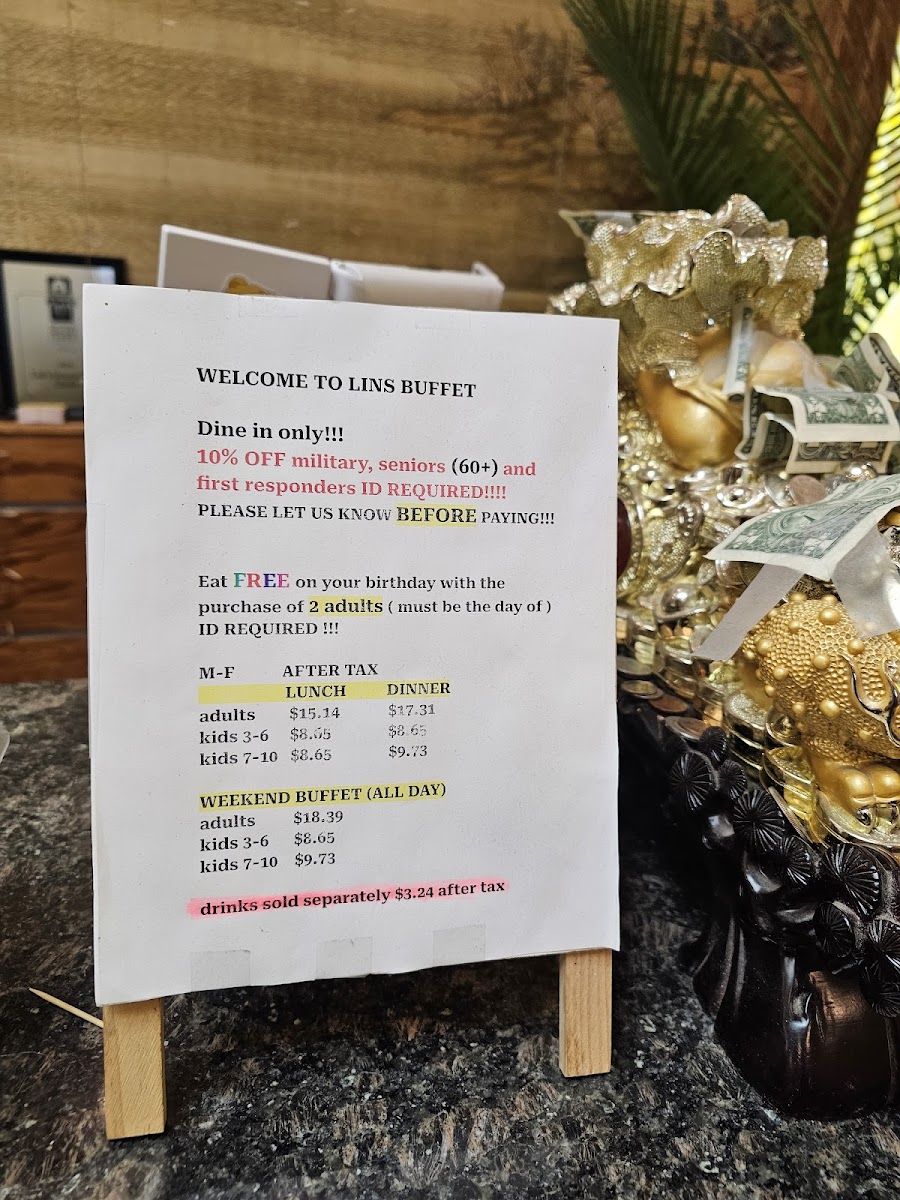 WELCOME TO LINS BUFFET
Dine in only!!!
10% OFF military, seniors (60+) and
first responders ID REQUIRED!!!!
PLEASE LET US KNOW BEFORE PAYING!!!
Eat FREE on your birthday with the
purchase of 2 adults ( must be the day of )
ID REQUIRED !!!
M-F AFTER TAX
LUNCH DINNER
adults $15.14 $17.31
kids 3-6 $8.65 $8.65
kids 7-10 $8.65 $9.73
WEEKEND BUFFET (ALL DAY)
adults $18.39
kids 3-6 $8.65
kids 7-10 $9.73
drinks sold separately $3.24 after tax